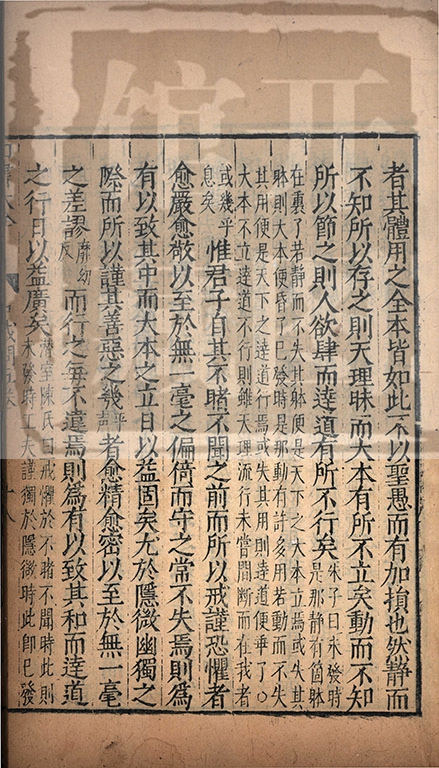 者其體用之全本皆如此不以聖愚而有加損也然靜而
不知所以存之則天理昧而大本有所不立矣動而不知
所以節之則人欲肆而達道有所不行矣
朱子曰未發時
是那靜有箇躰
在裏了若靜而不失其躰便是天下之大本立焉或失其
躰則大本便昏了已發時是那動有許多用若動而不失
其用便是天下之達道行焉或失其用則達道便乖了○
大本不立達道不行則雖天理流行未嘗間斷而在我者
或幾乎
息矣
惟君子自其不睹不聞之前而所以戒謹恐懼者
愈嚴愈敬以至於無一毫之偏倚而守之常不失焉則為
有以致其中而大本之立日以益固矣尤於隱微幽獨之
際而所以謹其善惡之幾
聲
者愈精愈密以至於無一毫
之差謬
靡幼
反
而行之每不違焉則為有以致其和而達道
之行日以益廣矣
潛室陳氏曰戒懼於不睹不聞時此則
未發時工夫謹獨於隱微時此卽已發